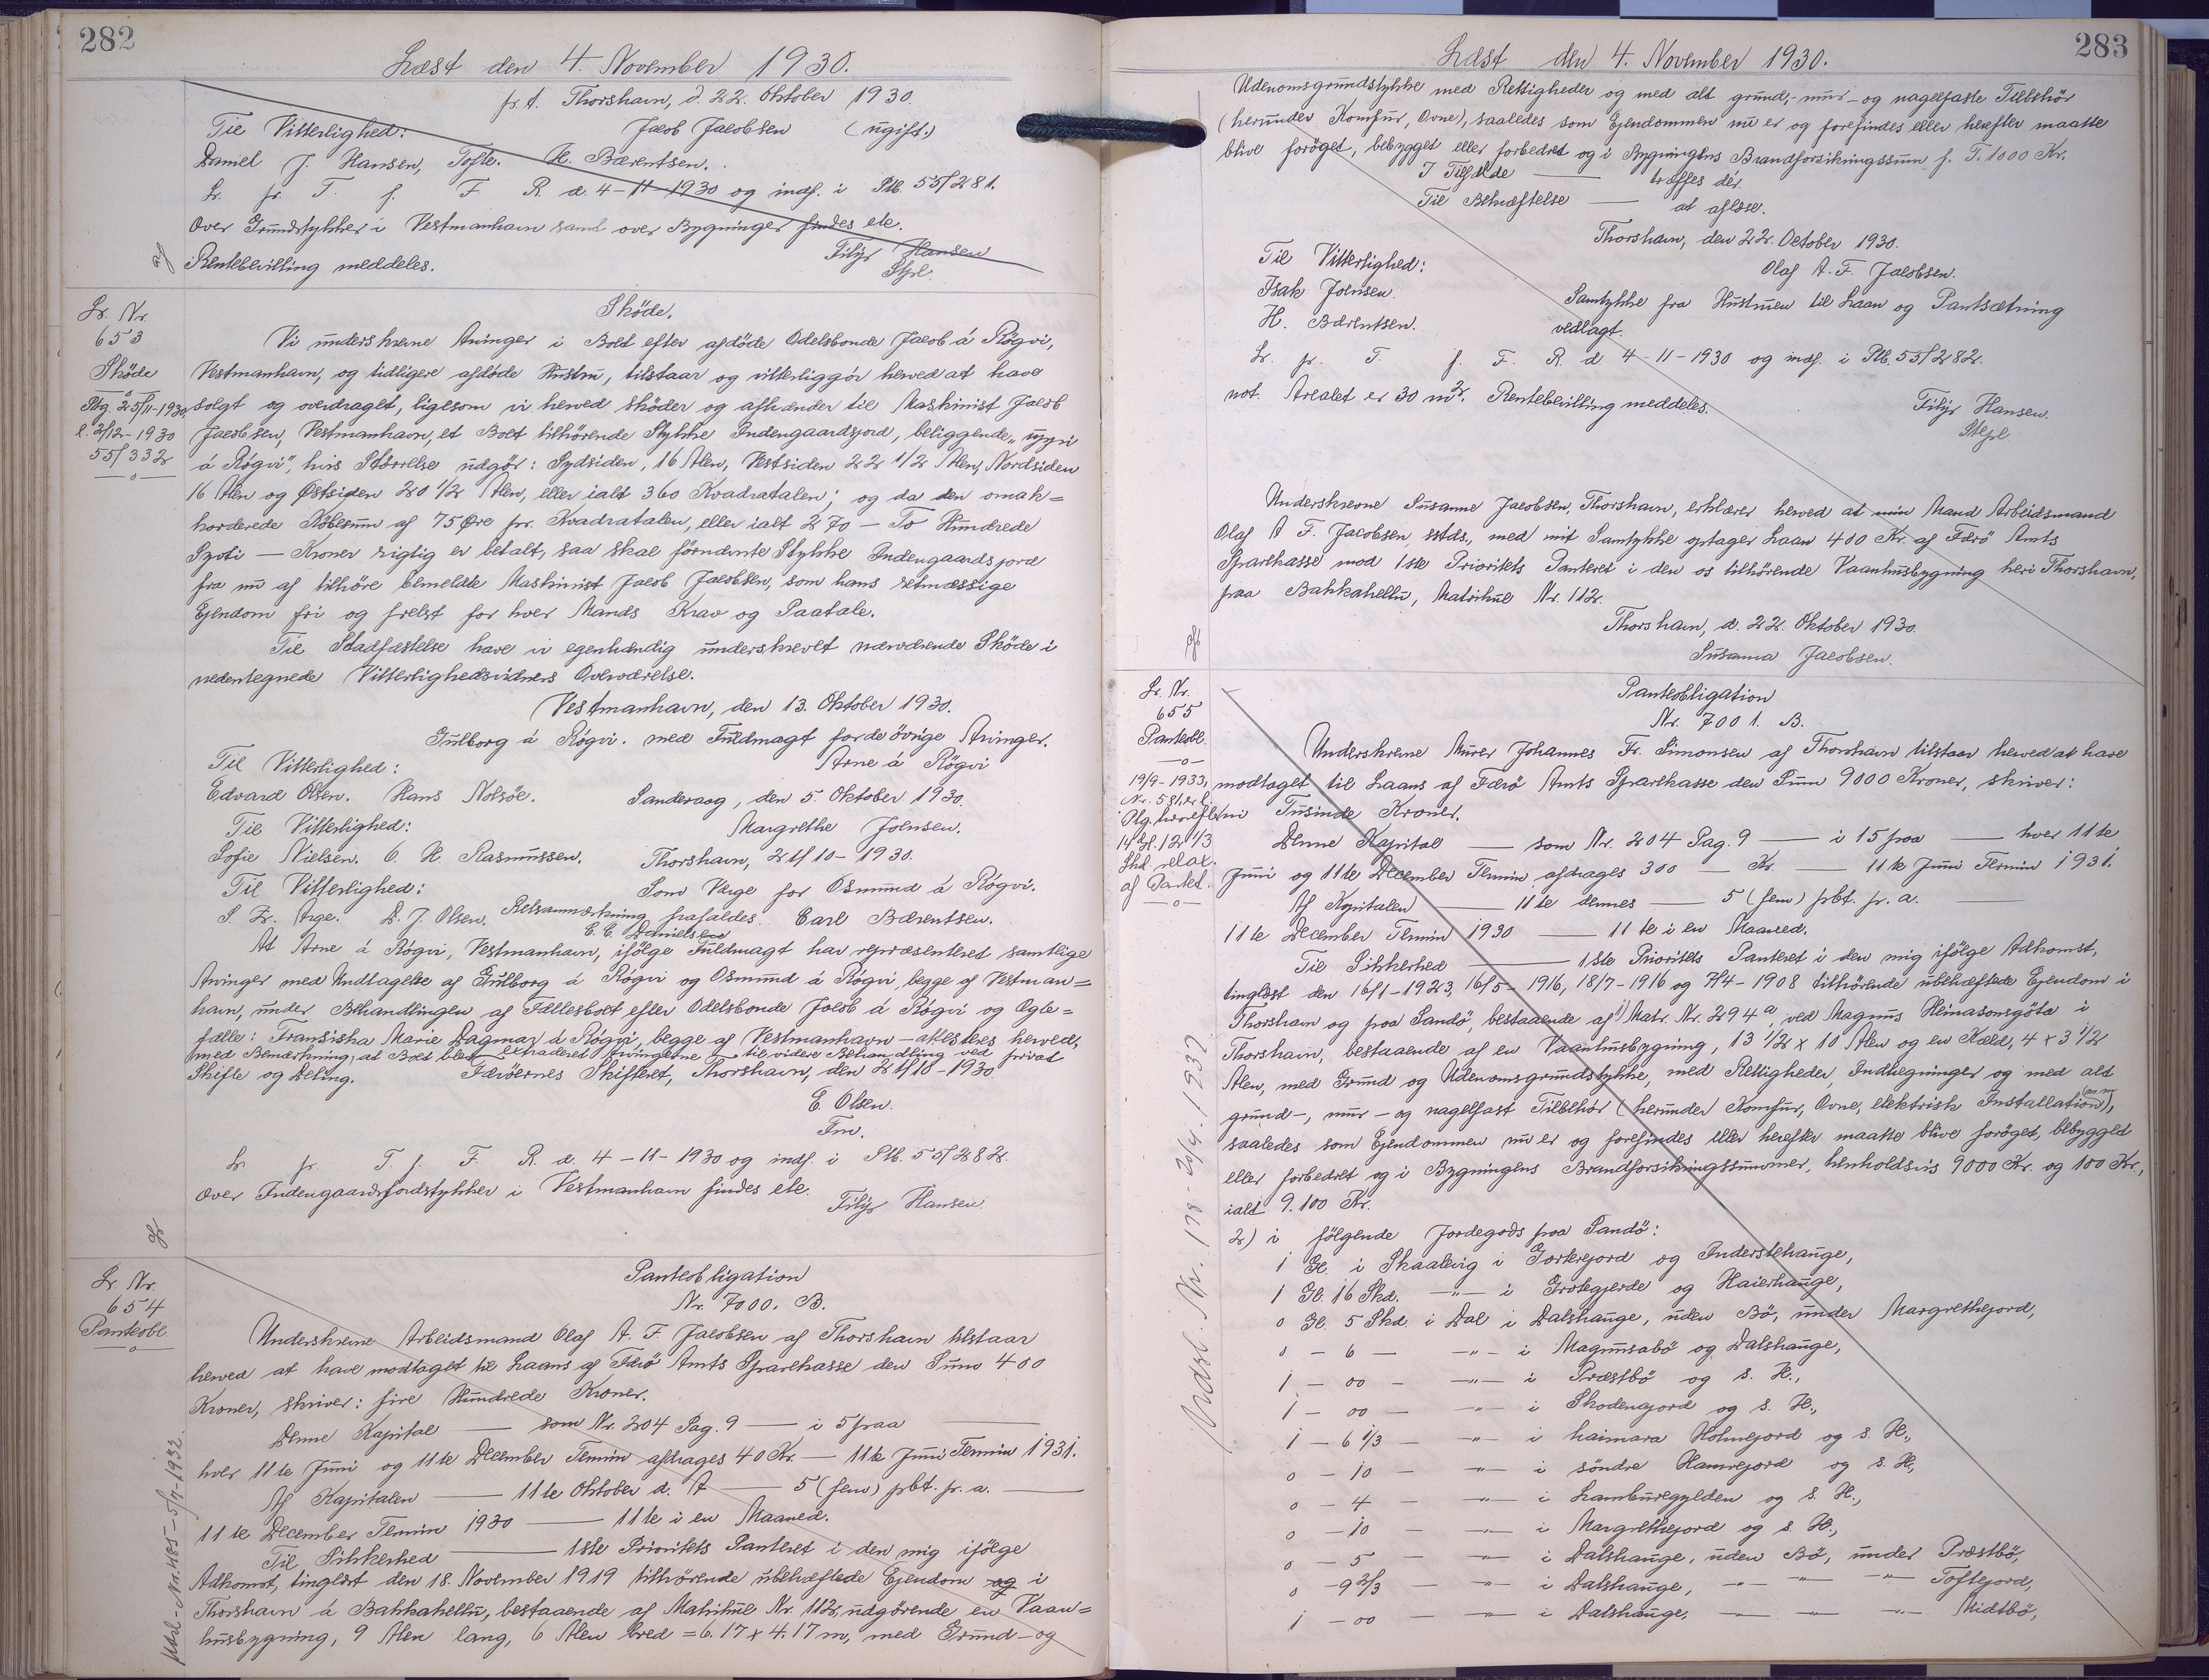 282
Læst den 4. November 1930.
p.t. Thorshavn, d. 22. Oktober 1930.
Til Vitterlighed: Jacob Jacobsen (ugift.)
Daniel J. Hansen, Tofte. H. Bærentsen.
Lr. pr. T. f. F. R. d. 4-11-1930 og indf. i Ptb. 55/281.
Over Grundstykker i Vestmanhavn samt over Bygninger findes ete.
Rentebevilling meddeles. Filip Hansen
Stpl.
Skøde.
Lr. Nr.
653
Skøde
Ptg. 25/11-1930,
l. 2/12-1930
55/332
Vi underskrevne Arvinger i Boet efter afdøde Odelsbonde Jacob á Rógvi,
Vestmanhavn, og tidligere afdøde Hustru, tilstaar og vitterliggör herved at have
solgt og overdraget, ligesom vi herved skøder og afhænder til Maskinist Jacob
Jacobsen, Vestmanhavn, et Boet tilhörende Stykke Indengaardsjord, beliggende "uppi
á Rógvi", hvis Størrelse udgör: Sydsiden, 16 Alen, Vestsiden 22 1/2 Alen, Nordsiden
16 Alen og Østsiden 20 1/2 Alen, eller ialt 360 Kvadratalen; og da den omak=
korderede Købesum af 75 Øre pr. Kvadratalen, eller ialt 270 — To Hundrede
Syoti — Kroner rigtig er betalt, saa skal förnævnte Stykke Indengaardsjord
fra nu af tilhöre bemeldte Maskinist Jacob Jacobsen, som hans retmæssige
Ejendom fri og frelst for hver Mands Krav og Paatale.
Til Stadfæstelse have vi egenhændig underskrevet nærværende Skøde i
nedentegnede Vitterlighedsvidners Overværelse.
Vestmanhavn, den 13. Oktober 1930.
Gulborg á Rógvi. med Fuldmagt for de övrige Arvinger.
Til Vitterlighed: Arne á Rógvi
Edvard Olsen. Hans Nolsöe. Sanderaag, den 5. Oktober 1930.
Til Vitterlighed: Margrethe Joensen.
Sofie Nielsen. O. K. Rasmussen. Thorshavn, 21/10-1930.
Til Vitterlighed: Som Værge for Osmund á Rógvi.
S. Fr. Arge. D. J. Olsen. Retsanmærkning frafaldes. Carl Bærentsen.
C. C. Danielsen
At Arne á Rógvi, Vestmanhavn, ifölge Fuldmagt har repræsenteret samtlige
Arvinger med Undtagelse af Gulborg á Rógvi og Osmund á Rógvi, begge af Vestman=
havn, under Behandlingen af Fællesboet efter Odelsbonde Jacob á Rógvi og Ægte=
fælle: Fransiska Marie Dagmar á Rógvi, begge af Vestmanhavn — attesteres herved,
med Bemærkning, at Boet blev extraderet Arvingerne til videre Behandling ved privat
Skifte og Deling. Færöernes Skifteret, Thorshavn, den 21/10-1930
E. Olsen.
Fm.
Lr. pr. T. f. F. R. d. 4-11-1930 og indf. i Ptb. 55/282.
Over Indengaardsjordstykker i Vestmanhavn findes ete.
Filip Hansen.
Lr. Nr.
654
Panteobl.
Panteobligation
Nr. 7000. B.
Underskrevne Arbeidsmand Olaf A. F. Jacobsen af Thorshavn tilstaar
herved at have modtaget til Laans af Færö Amts Sparekasse den Sum 400
Kroner, skriver: fire Hundrede Kroner.
Denne Kapital — som Nr. 204 Pag. 9 — i 5 paa —
hver 11te Juni og 11te December Termin afdrages 40 Kr. — 11te Juni Termin 1931.
Af Kapitalen — 11te Oktober d. A — 5 (fem) pCt. pr. a. —
11te December Termin 1930 — 11te i en Maaned.
Til Sikkerhed — 1ste Prioritets Panteret i den mig ifölge
Adkomst, tinglæst den 18. November 1919 tilhörende ubehæftede Ejendom og i
Thorshavn á Bakkahellu, bestaaende af Matrikul Nr. 112, udgörende en Vaan=
husbygning, 9 Alen lang, 6 Alen bred = 6.17 x 4.17 m, med Grund- og
Udsl. Nr. 485 - 5/7-1932.
283
Læst den 4. November 1930.
Udenomsgrundstykke med Rettigheder og med alt grund-, mur- og nagelfaste Tilbehör
(herunder Komfur, Ovne), saaledes som Ejendommen nu er og forefindes eller herefter maatte
blive forøget, bebygget eller forbedret og i Bygningens Brandforsikringssum p. T. 1000 Kr.
I Tilfælde — træffes dér.
Til Bekræftelse — at aflæse.
Thorshavn, den 22. October 1930.
Til Vitterlighed: Olaf A. F. Jacobsen.
Isak Joensen. Samtykke fra Hustruen til Laan og Pantsætning
H. Bærentsen. vedlagt.
Lr. pr. T. f. F. R. d. 4-11-1930 og indf. i Ptb. 55/282.
not. Arealet er 30 m². Rentebevilling meddeles. Filip Hansen.
Stpl.
Underskrevne Susanne Jacobsen, Thorshavn, erklærer herved at min Mand Arbeidsmand
Olaf A F. Jacobsen, sstds., med mit Samtykke optager Laan 400 Kr. af Færö Amts
Sparekasse mod 1ste Prioritets Panteret i den os tilhörende Vaanhusbygning her i Thorshavn,
paa Bakkahellu, Matrikul Nr. 112.
Thorshavn, d. 22. Oktober 1930.
Susanna Jacobsen.
Lr. Nr.
655
Panteobl.
19/9-1933,
Panteobligation
Nr. 7001. B.
Underskrevne Murer Johannes Fr. Simonsen af Thorshavn tilstaar herved at have
modtaget til Laans af Færö Amts Sparekasse den Sum 9000 Kroner, skriver:
ni Tusinde Kroner.
Denne Kapital — som Nr. 204 Pag. 9 — i 15 paa — hver 11te
Juni og 11te December Termin afdrages 300 — Kr. — 11te Juni Termin 1931.
Af Kapitalen — 11te dennes — 5 (fem) pCt. pr. a. —
11te December Termin 1930 — 11te i en Maaned.
Til Sikkerhed — 1ste Prioritets Panteret i den mig ifölge Adkomst,
tinglæst den 16/1-1923, 16/5-1916, 18/7-1916 og 7/4-1908 tilhörende ubehæftede Ejendom i
Thorshavn og paa Sandö, bestaaende af 1) Matr. Nr. 294a, ved Magnus Heinasonsgöta i
Thorshavn, bestaaende af en Vaanhusbygning, 13 1/2 x 10 Alen og en Kæld, 4 x 3 1/2
Alen, med Grund og Udenomsgrundstykke, med Rettigheder, Indhegninger og med alt
grund-, mur- og nagelfast Tilbehör (herunder Komfur, Ovne, elektrisk Installation),
saaledes som Ejendommen nu er og forefindes eller herefter maatte blive forøget, bebygget
eller forbedret og i Bygningens Brandforsikringssummer, henholdsvis 9000 Kr. og 100 Kr.,
ialt 9.100 Kr.
2) i fölgende Jordegods paa Sandö:
1 Gl. i Skaalevig i Gorkrejord og Inderstehauge,
1 Gl. 16 Skd. —"— i Grotegjerde og Haierhauge,
0 Gl. 5 Skd. i Dal i Dalshauge, uden Bö, under Margrethejord,
0 — 6 — —"— i Magnusabö og Dalshauge,
1 — 00 — —"— i Præstbö og s. H.,
1 — 00 — —"— i Skodenajord og s. H.,
1 — 6 1/3 — —"— i haimara Holmejord og s. H.,
0 — 10 — —"— i söndre Hamrejord og s. H.,
0 — 4 — —"— i Lamburegylden og s. H.,
0 — 10 — —"— i Margrethejord og s. H.,
0 — 5 — —"— i Dalshauge, uden Bö, under Præstbö,
0 — 9 2/3 — —"— i Dalshauge, —"— —"— —"— Toftejord,
1 — 00 — —"— i Dalshauge, —"— —"— —"— Midtbö,
Udsl. Nr. 178 - 20/4. 1937